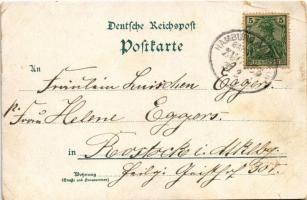 Deutsche Reichspost
Postkarte
An
Fräulein Luischen Eggers
p. Frau Helene Eggers
in Rostock i. Mklbg.
Wohnung
(Straße und Hausnummer)
Heilg. Geisthof
HAMBURG
5